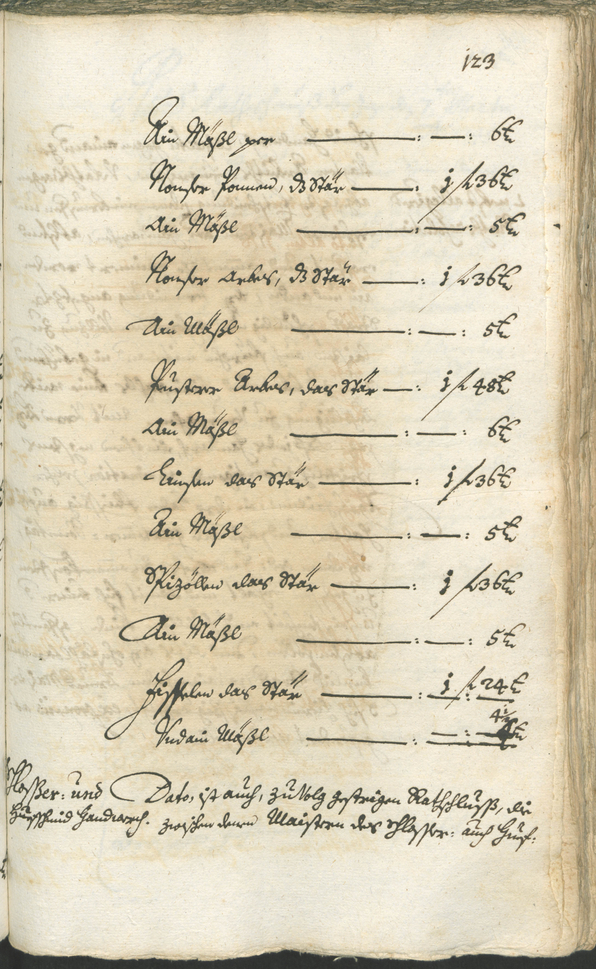 123
Ain Mäßl per — : — : 6 kr
Nonser Ponnen, dz Stär — : 1 fl 36 kr
Ain Mäßl — : — : 5 kr
Nonser Arbes, dz Stär — : 1 fl 36 kr
Ain Mäßl — : — : 5 kr
Pusterer Arbes, das Stär — : 1 fl 48 kr
Ain Mäßl — : — : 6 kr
Linsen das Stär — : 1 fl 36 kr
Ain Mäßl — : — : 5 kr
das Stär — : 1 fl 36 kr
Ain Mäßl — : — : 5 kr
Fisselen das Stär — : 1 fl 24 kr
Und ain Mäßl — : — : 4½ kr
Schlosser: und
Huefschmid Handwerch.
Dato, ist auch, zu Volg gestrigen Rathschluss, die
zwischen denen Maistern des Schlosser: auch Huef: